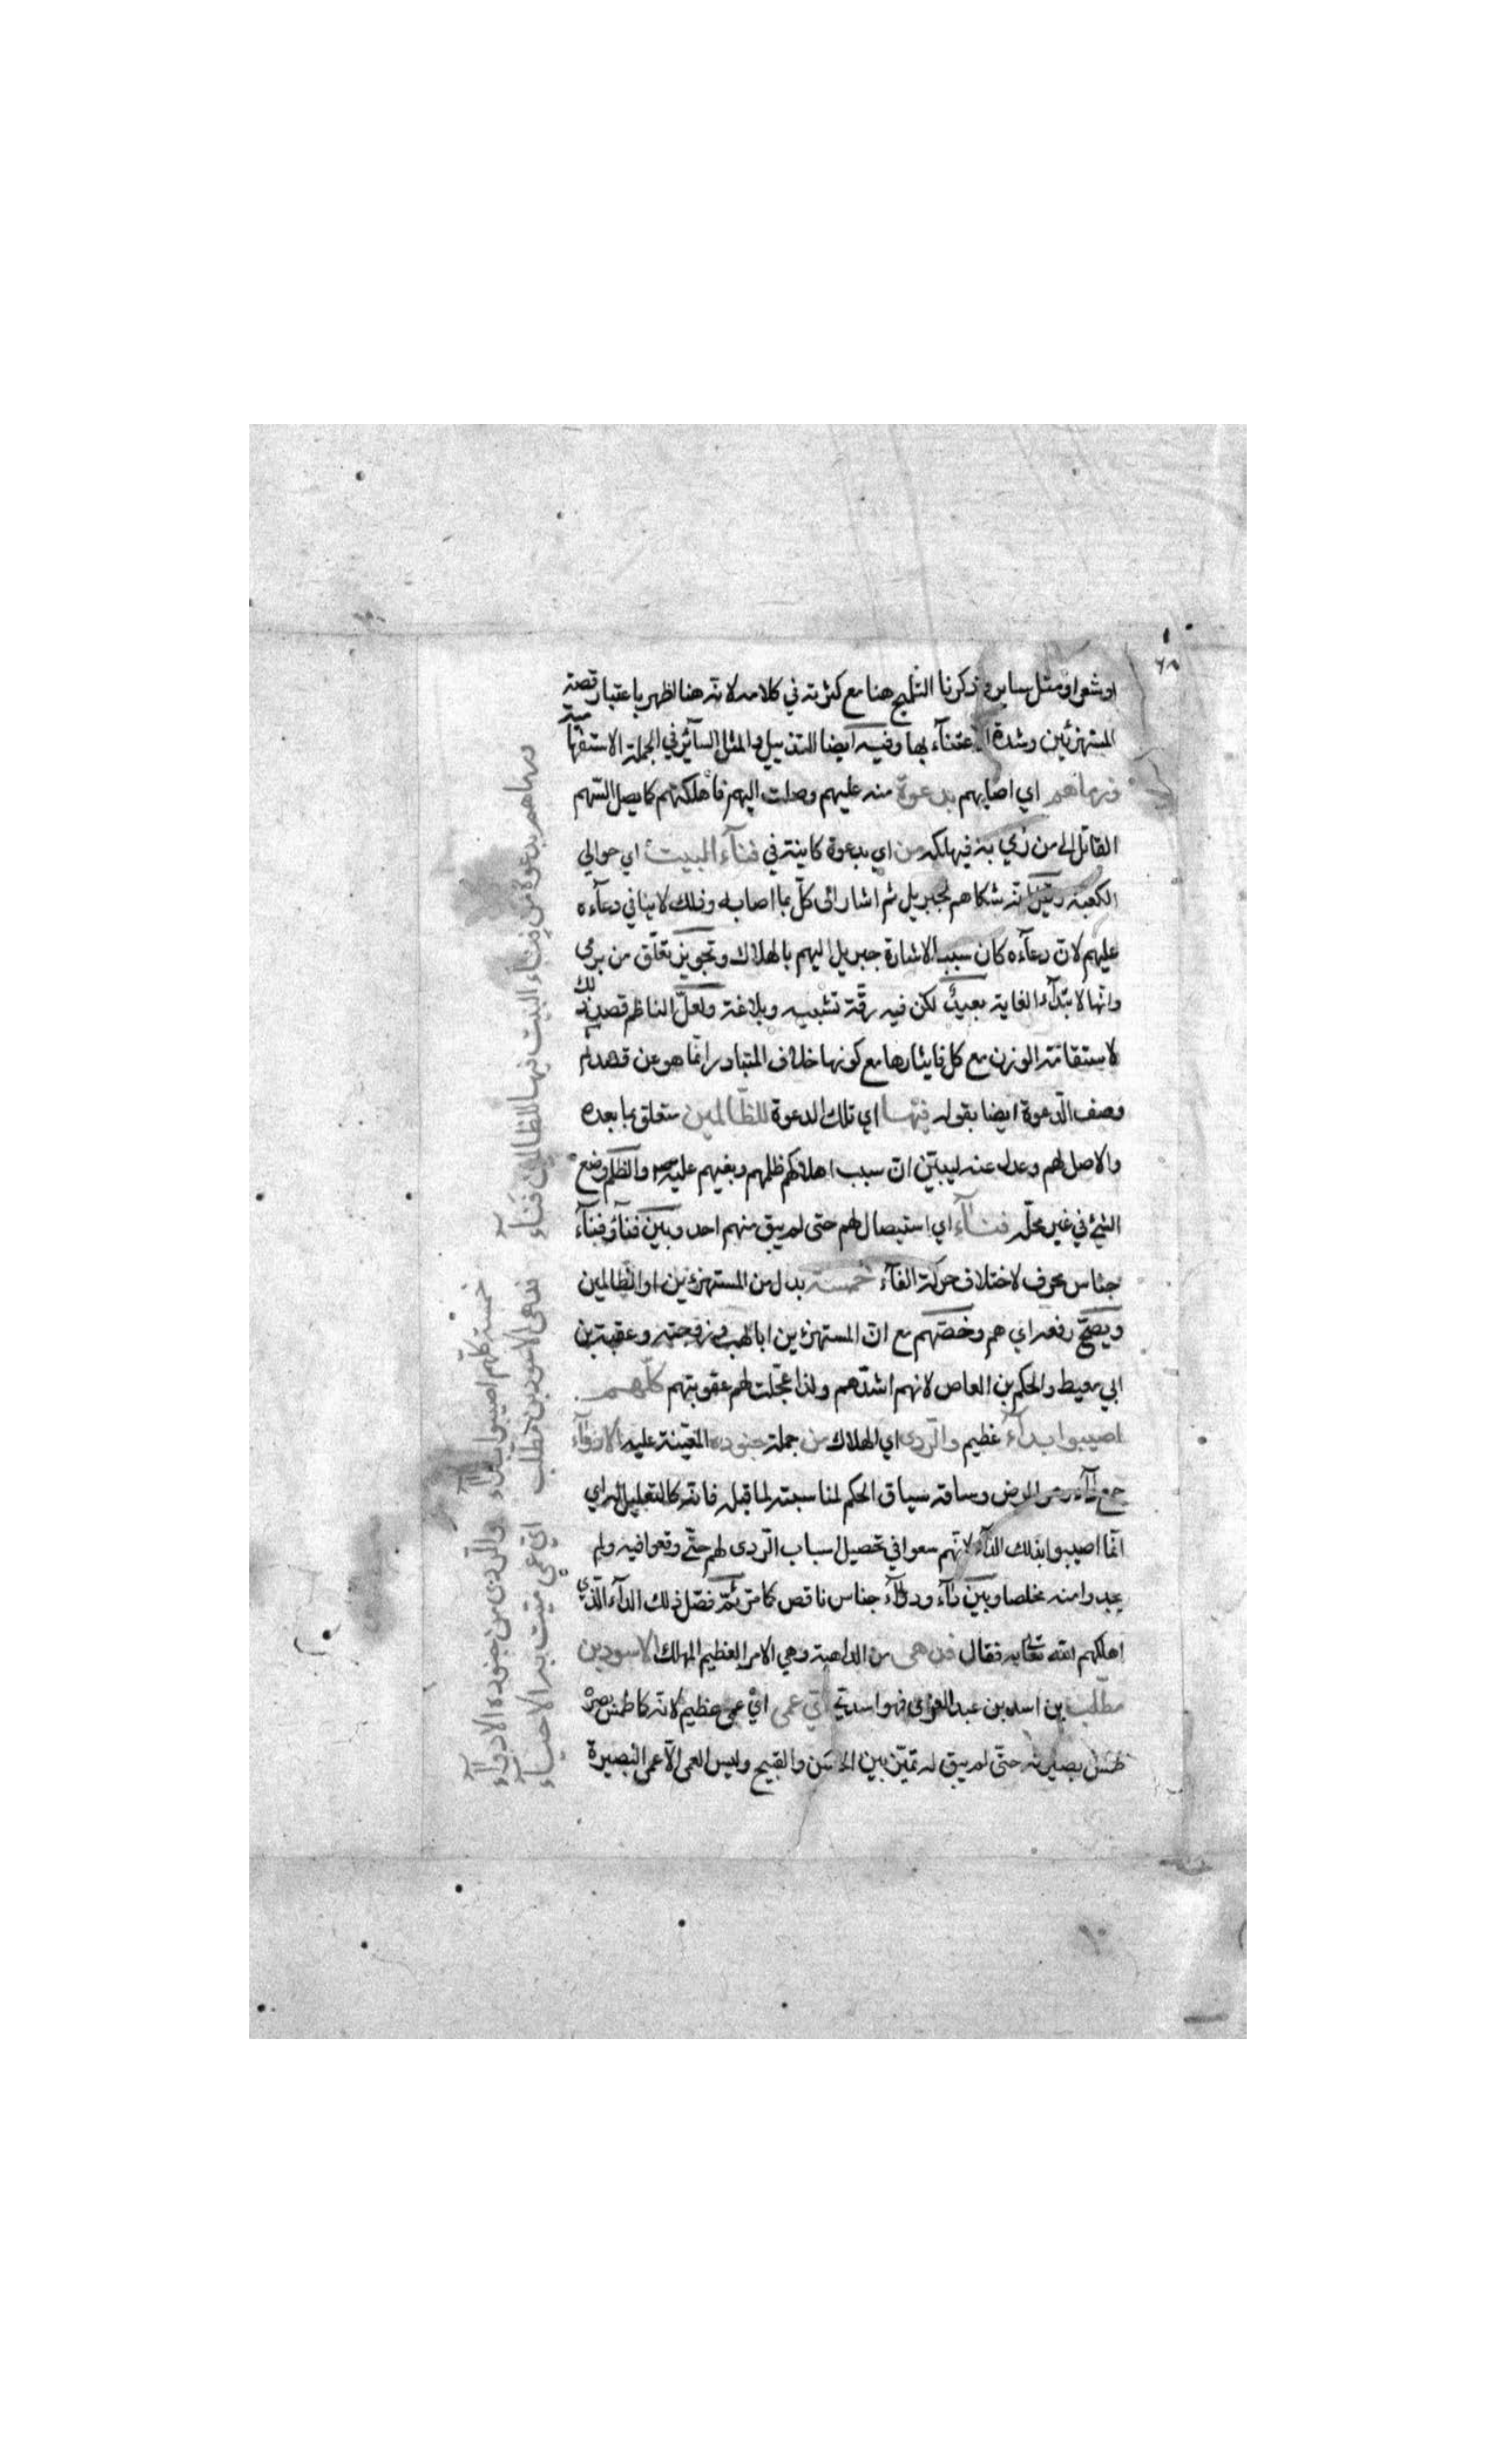 او شعرا ومثل سابر وذكرنا التلميح هنا مع كثرته في كلامه لانه هنا اظهر باعتبار قصة
المستهزئين وشدة الاعتناء بها وفيه ايضا التذييل والمثل السآئر في الجملة الاستفهامية
ورماهم اي اصابهم بدعوة منه عليهم وصلت اليهم فاهلكتهم كما يصل السهم
القاتل الى من رمي به فيهلكه من اي بدعوة كاينة في فنآء البيت اي حوالي
الكعبة انه شكاهم لجبريل ثم اشار الى كل بما اصابه وذلك لا ينافي دعآءه
عليهم لان دعآءه كان سببا لاشارة جبريل اليهم بالهلاك وتجويز تعلق من برمى
وانها لابتدآء الغاية بعيد لكن فيه رقة تشبيه وبلاغة ولعل الناظم قصد ذلك
لاستقامة الوزن مع كل فايثارها مع كونها خلاف المتبادر انما هو عن قصد ثم
وصف الدعوة ايضا بقوله فيها اي تلك الدعوة للظالمين متعلق بما بعده
والاصل لهم وعدل عنه ليبين ان سبب اهلاكهم ظلمهم وبغيهم عليه والظلم وضع
الشئ في غير محله فنآء اي استيصال لهم حتى لم يبق منهم احد وبين فنآء وفنآء
جناس محرف لاختلاف حركة الفآء خمسة بدل من المستهزئين او الظالمين
ويصح رفعه اي هم وخصهم مع ان المستهزئين ابا لهب وزوجته وعقبة بن
ابي معيط والحكم بن العاص لانهم اشدهم ولذا عجلت لهم عقوبتهم كلهم
اصيبوا بدآء عظيم والردى اي الهلاك من جملة جنوده المعينة عليه الادوآء
جمع دآء وهو المرض وساقه سياق الحكم لمناسبته لما قبله فانه كالتعليل له اي
انما اصيبوا بذلك الدآء لانهم سعوا في تحصيل اسباب الردى لهم حتى وقعوا فيه ولم
يجدوا منه مخلصا وبين دآء ودوآء جناس ناقص كما مر ثم فصل ذلك الدآء الذي
اهلكهم الله تعالى به فقال فدهى من الداهية وهي الامر العظيم المهلك الاسود بن
مطلب بن اسد بن عبد العزى فهو اسدي اي عمى اي عمى عظيم لانه كما طمس بصره
طمس بصيرته حتى لم يبق له تميز بين الحسن والقبيح وليس العمى الا عمى البصيرة
ورماهم بدعوة من فنآء البيت فيها للظالمين فنآء
خمسة كلهم اصيبوا بدآء والردى من جنوده الادوآء
فدهى الاسود بن مطلب اي عمى ميت به الاحيآء